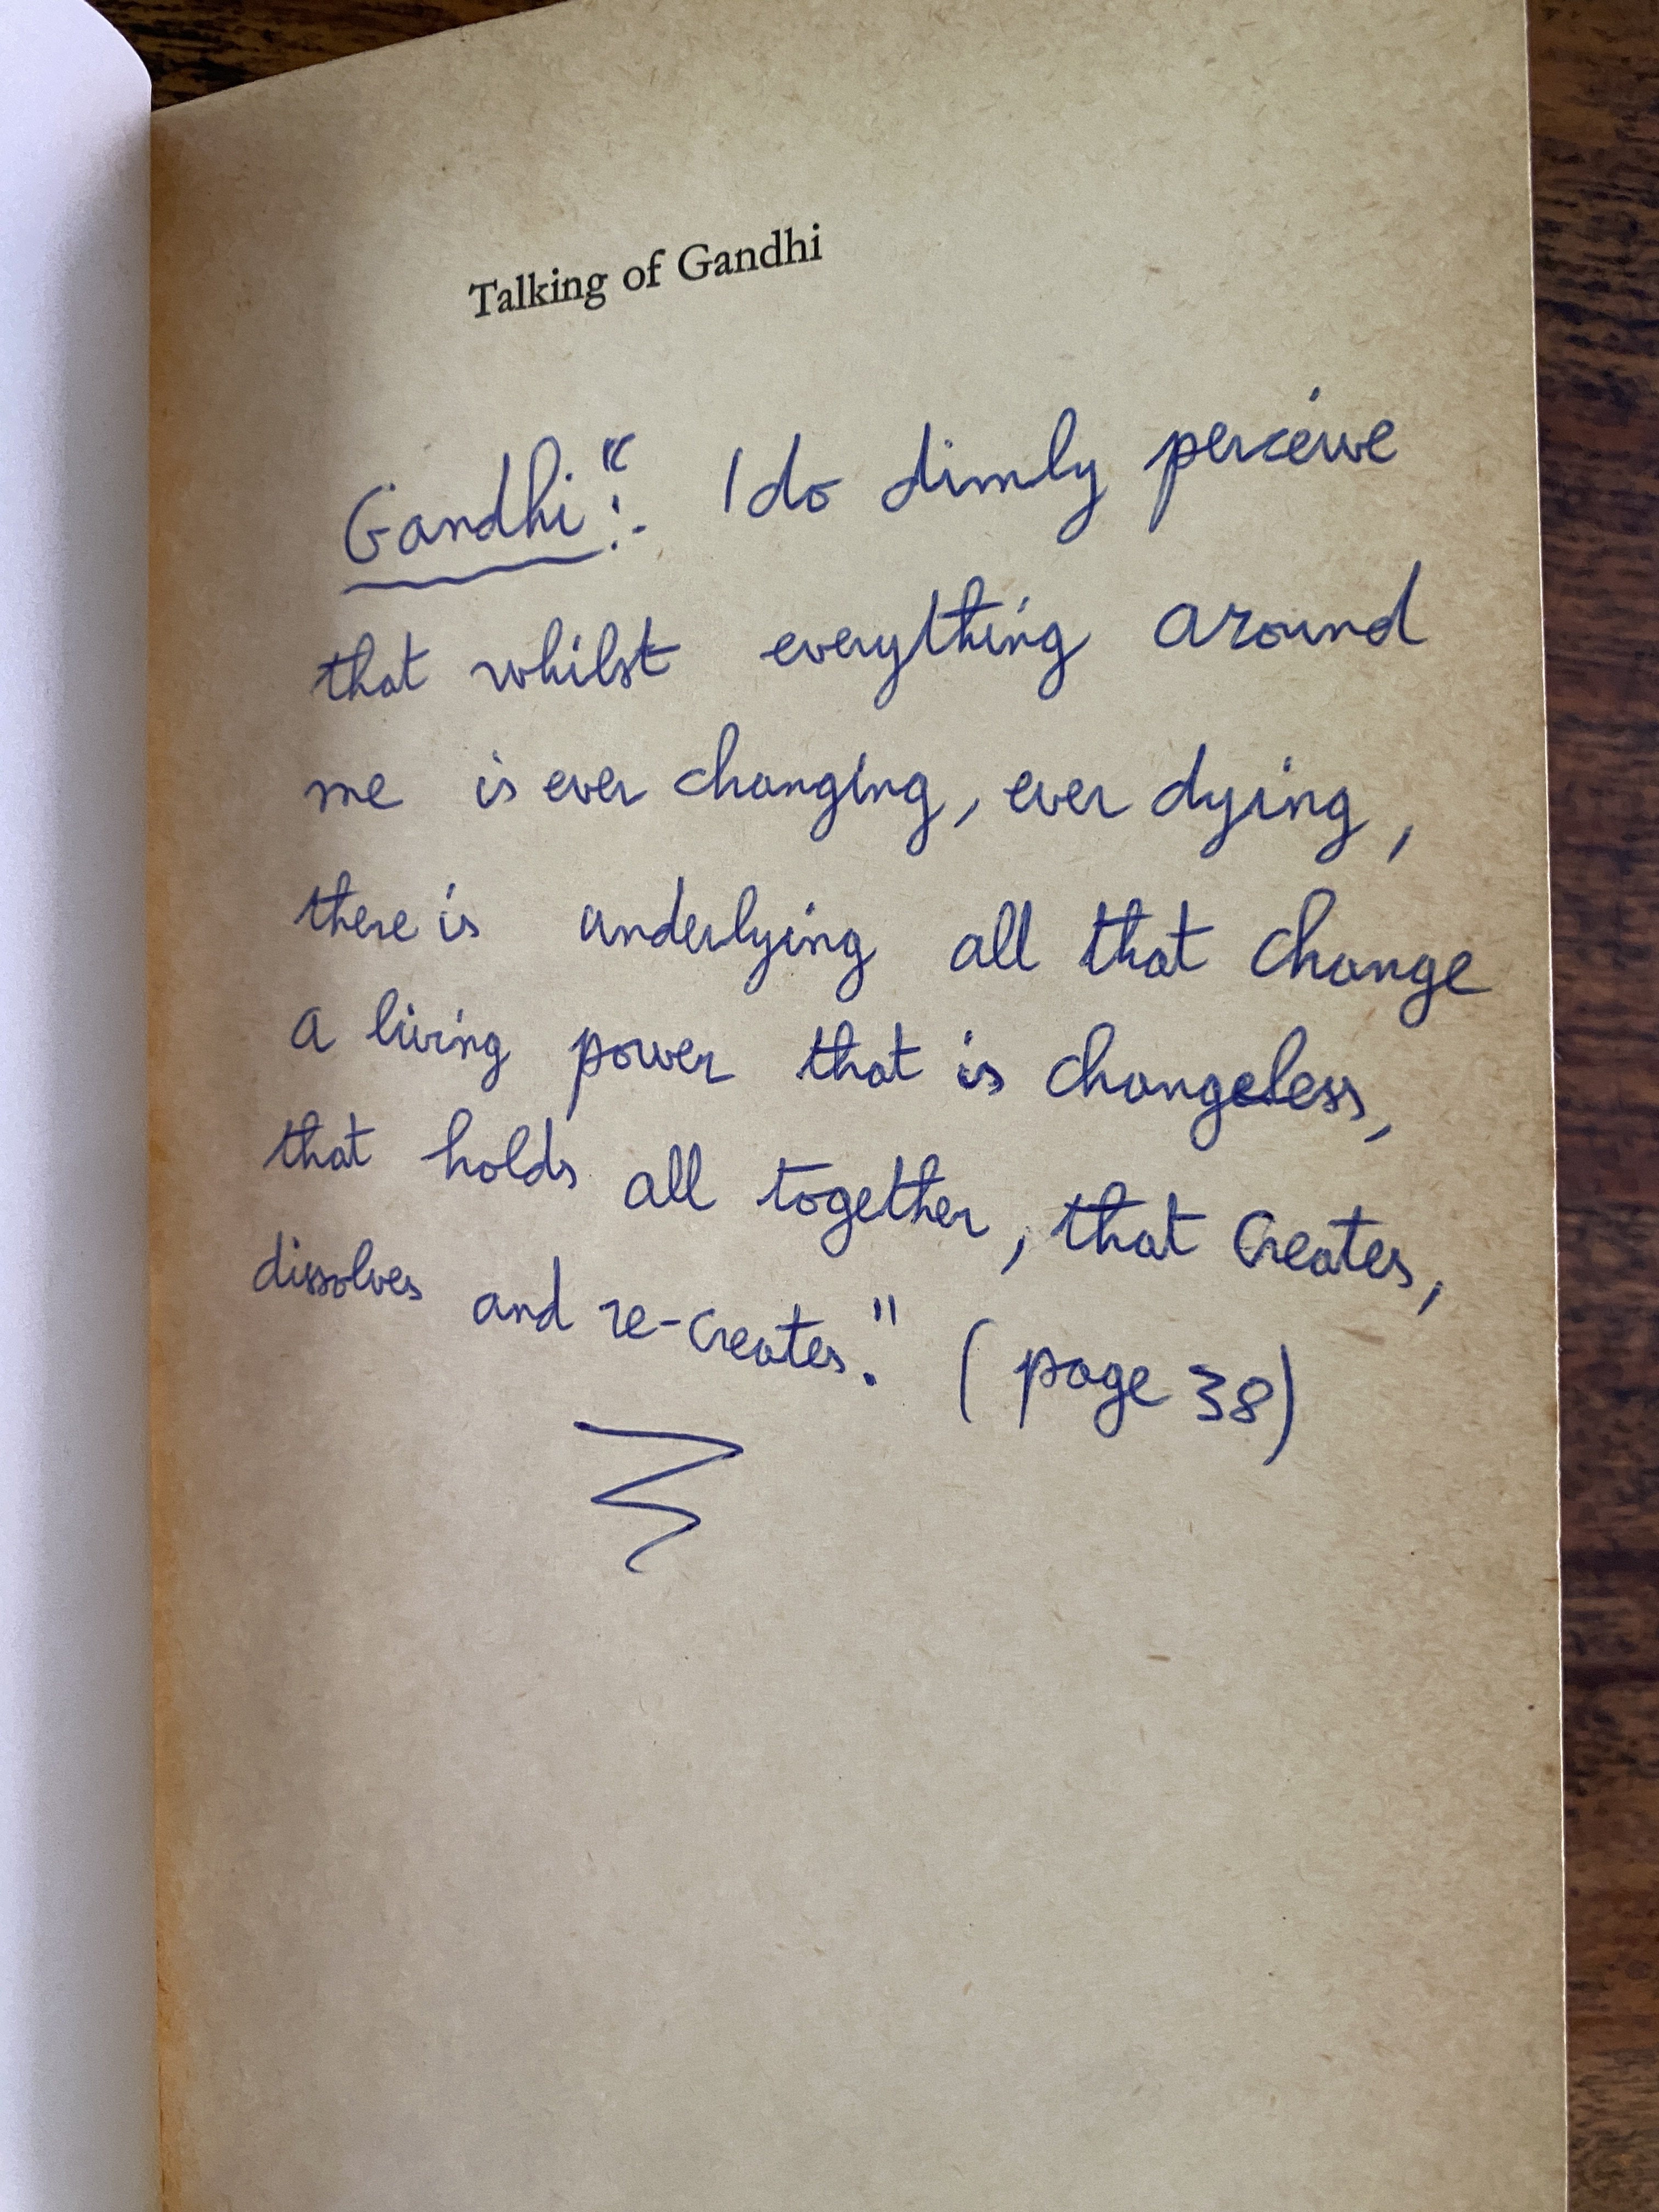 Talking of Gandhi
Gandhi:- " I do dimly perceive
that whilst everything around
me is ever changing, ever dying,
there is underlying all that change
a living power that is changeless,
that holds all together, that creates,
dissolves and re-creates." (page 38)